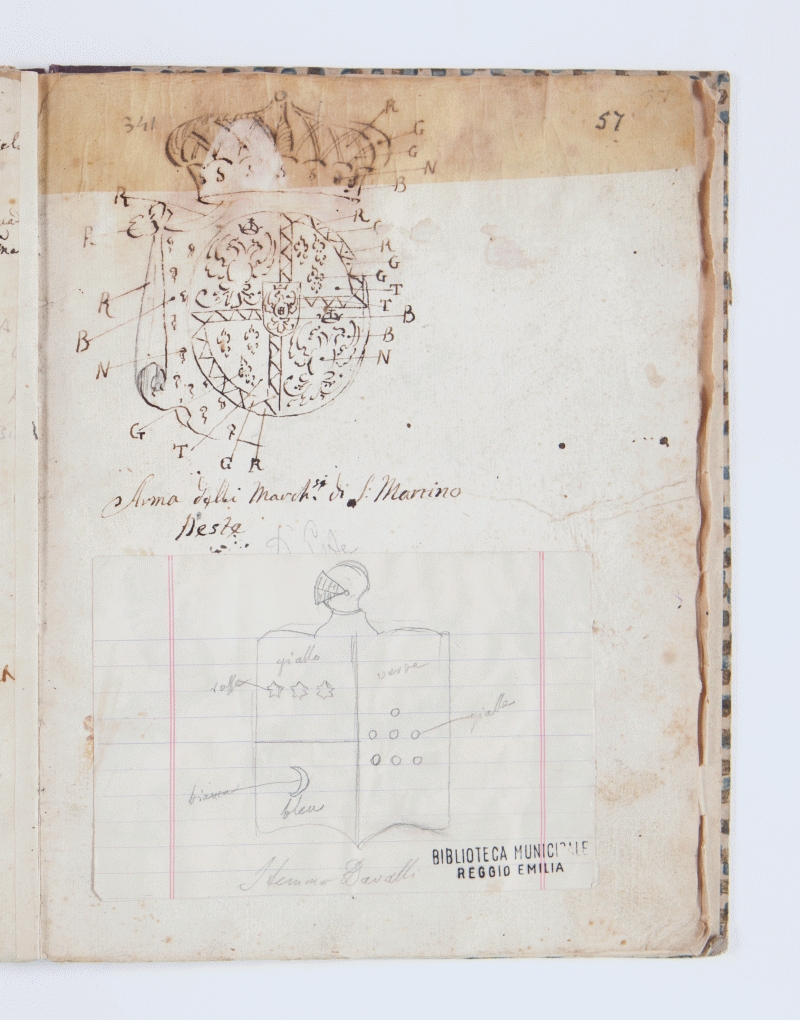 341
57
R
G
G
N
B
R
R
R
G
R
G
G T
T
B
R
B
N
B
N
G
T
G R
Arma delli March.si di S. Martino
Deste
giallo
rosso
verde
giallo
bianca
bleu
Stemma Davalli
BIBLIOTECA MUNICIPALE
REGGIO EMILIA